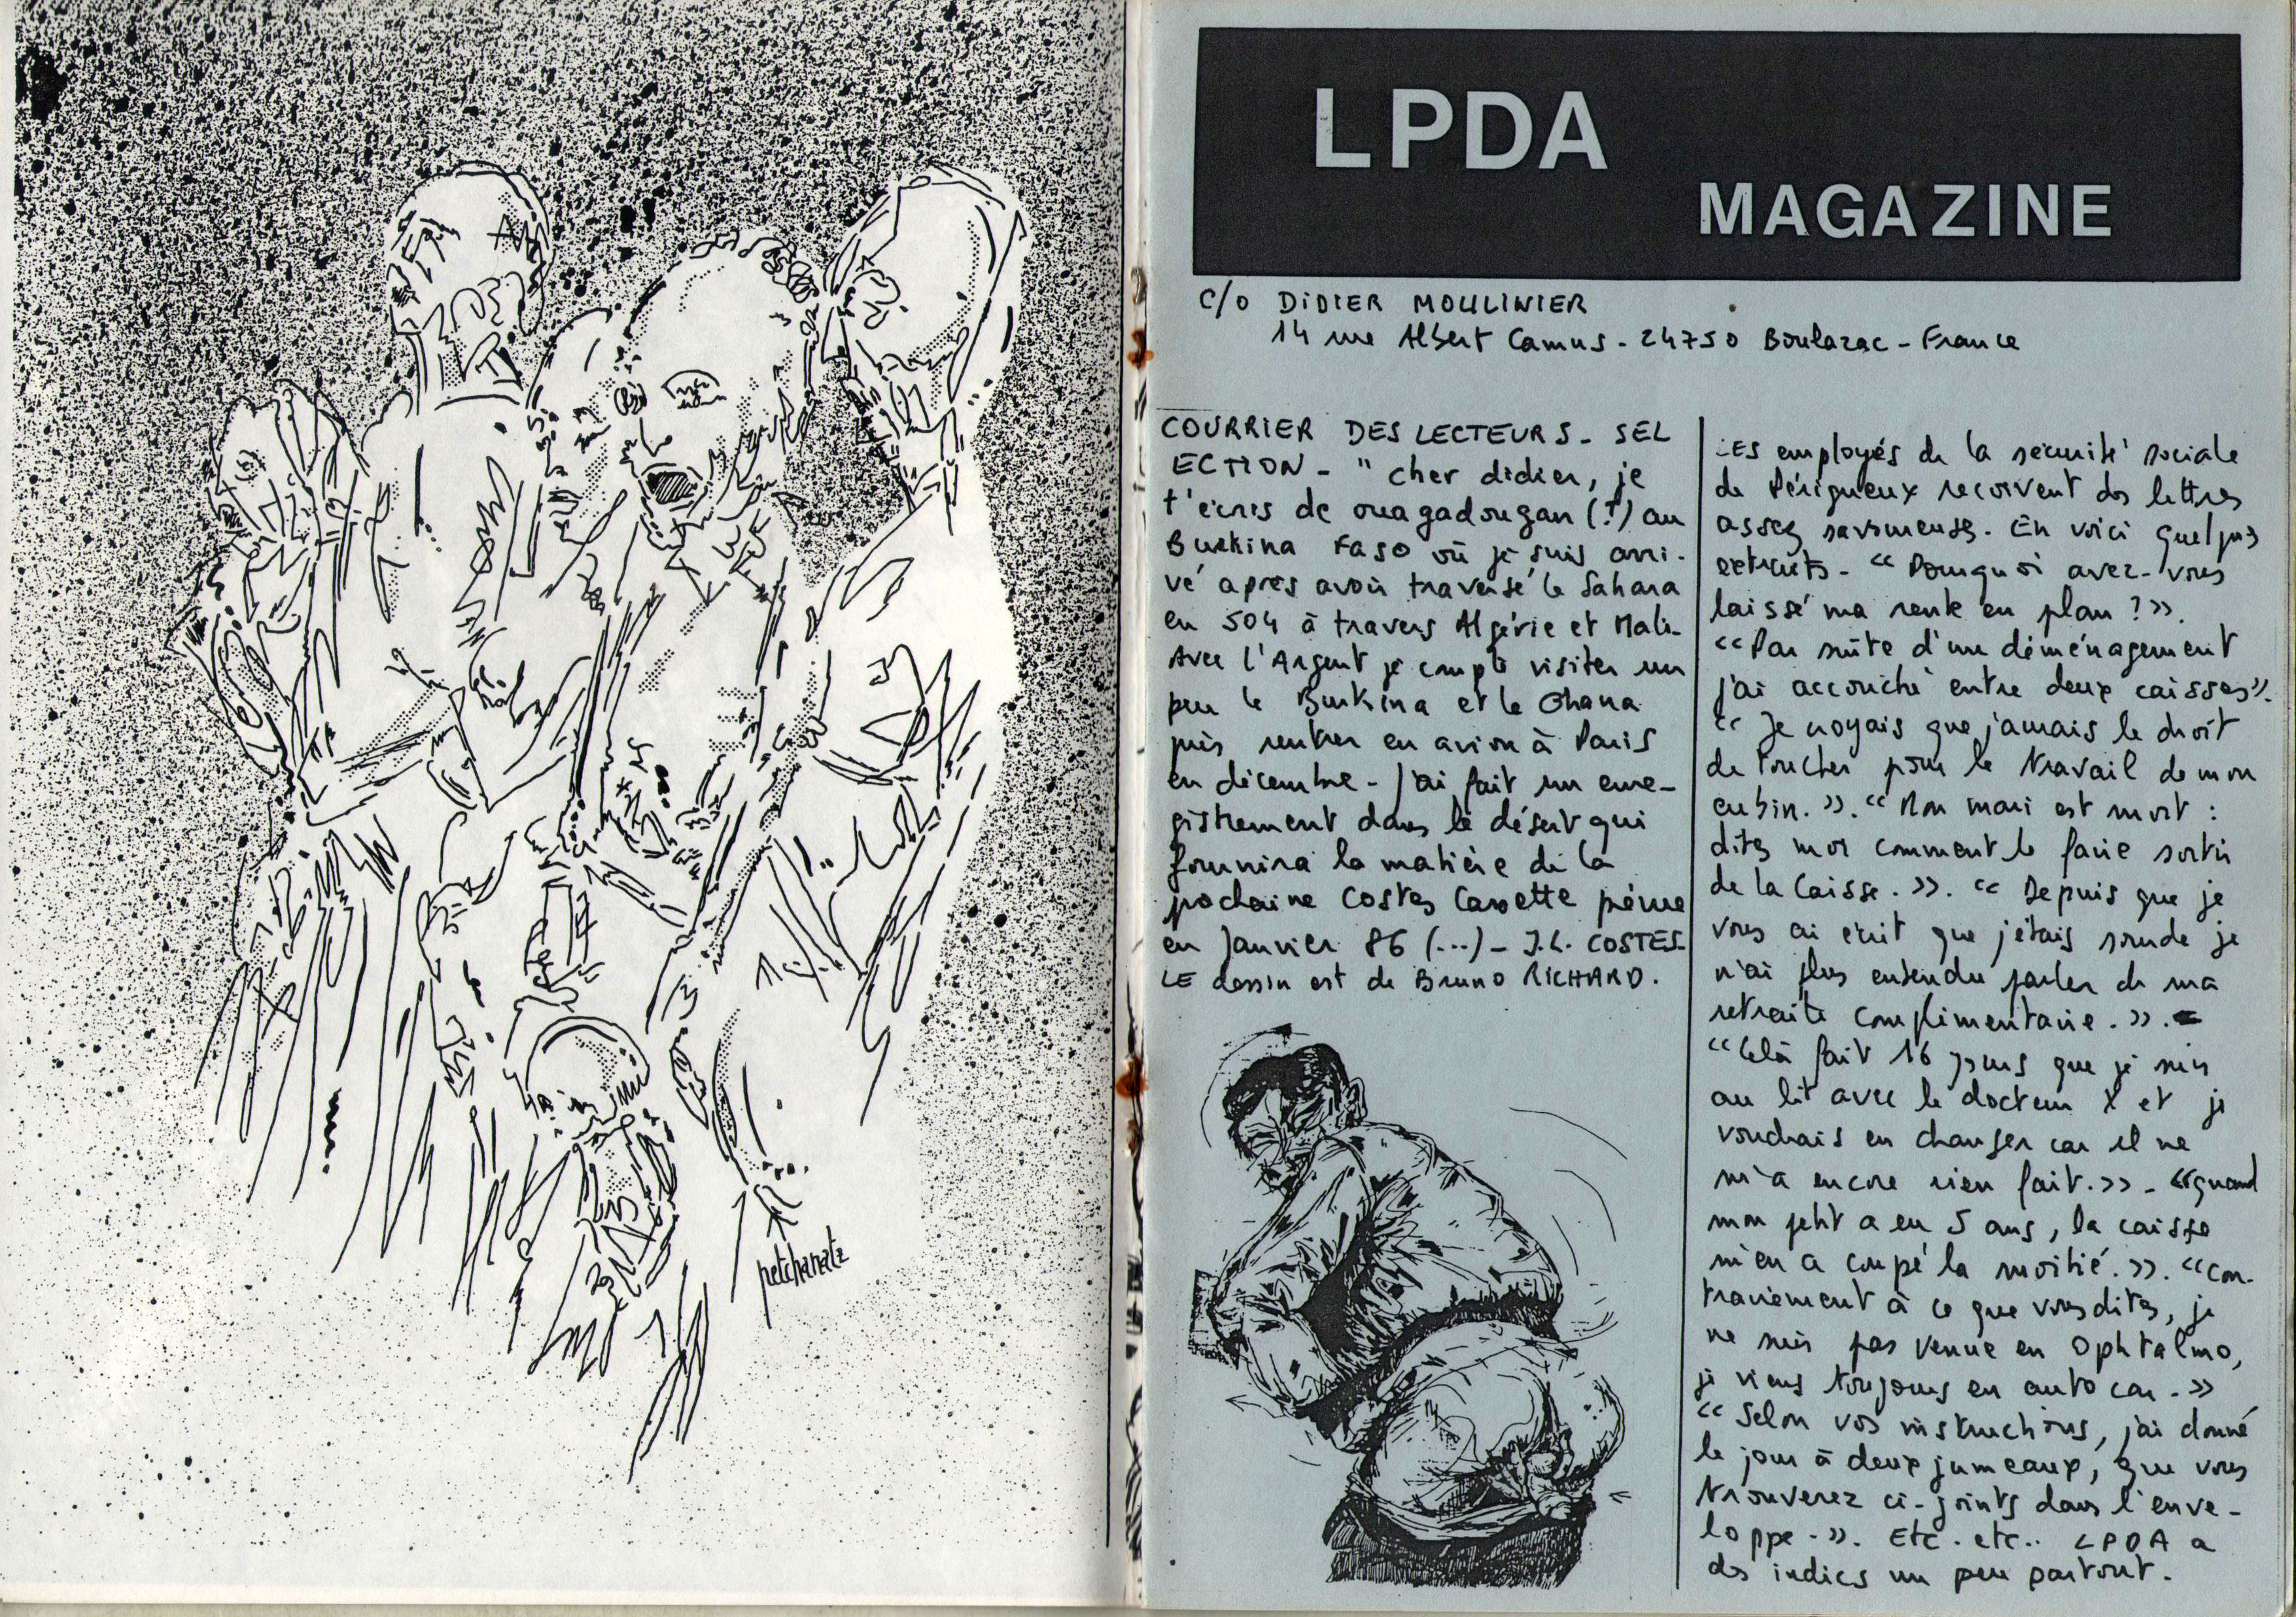 petchanatz
LPDA
MAGAZINE
C/O DIDIER MOULINIER
14 rue Albert Camus - 24750 Boulazac - France
COURRIER DES LECTEURS - SEL
ECTION - " cher didier, je
t'écris de ouagadougan (?) au
Burkina Faso où je suis arri-
vé après avoir traversé le Sahara
en 504 à travers Algérie et Mali-
Avec l'Argent je compte visiter un
peu le Burkina et le Ghana
puis rentrer en avion à Paris
en décembre - J'ai fait un enre-
gistrement dans le désert qui
fournira la matière de la
prochaine Costes Cassette prévue
en Janvier 86 (...) - J.L. COSTES
LE dessin est de Bruno RICHARD.
LES employés de la sécurité sociale
de Périgueux reçoivent des lettres
assez savoureuses. En voici quelques
extraits - « Pourquoi avez-vous
laissé ma rente en plan ? ».
« Par suite d'un déménagement
j'ai accouché entre deux caisses ».
« Je croyais que j'amais le droit
de toucher pour le travail de mon
cubin. ». « Mon mari est mort :
dites moi comment le faire sortir
de la Caisse. ». « Depuis que je
vous ai écrit que j'étais sourde je
n'ai plus entendu parler de ma
retraite complimentaire. ».
« Celà fait 16 jours que je suis
au lit avec le docteur X et je
voudrais en changer car il ne
m'a encore rien fait. » - « quand
mon petit a eu 5 ans, la caisse
m'en a coupé la moitié. ». « con-
trairement à ce que vous dites, je
ne suis pas venue en Ophtalmo,
je viens toujours en auto car - »
« Selon vos instructions, j'ai donné
le jour à deux jumeaux, que vous
trouverez ci-joints dans l'enve-
loppe - ». Etc. etc.. LPDA a
des indics un peu partout.